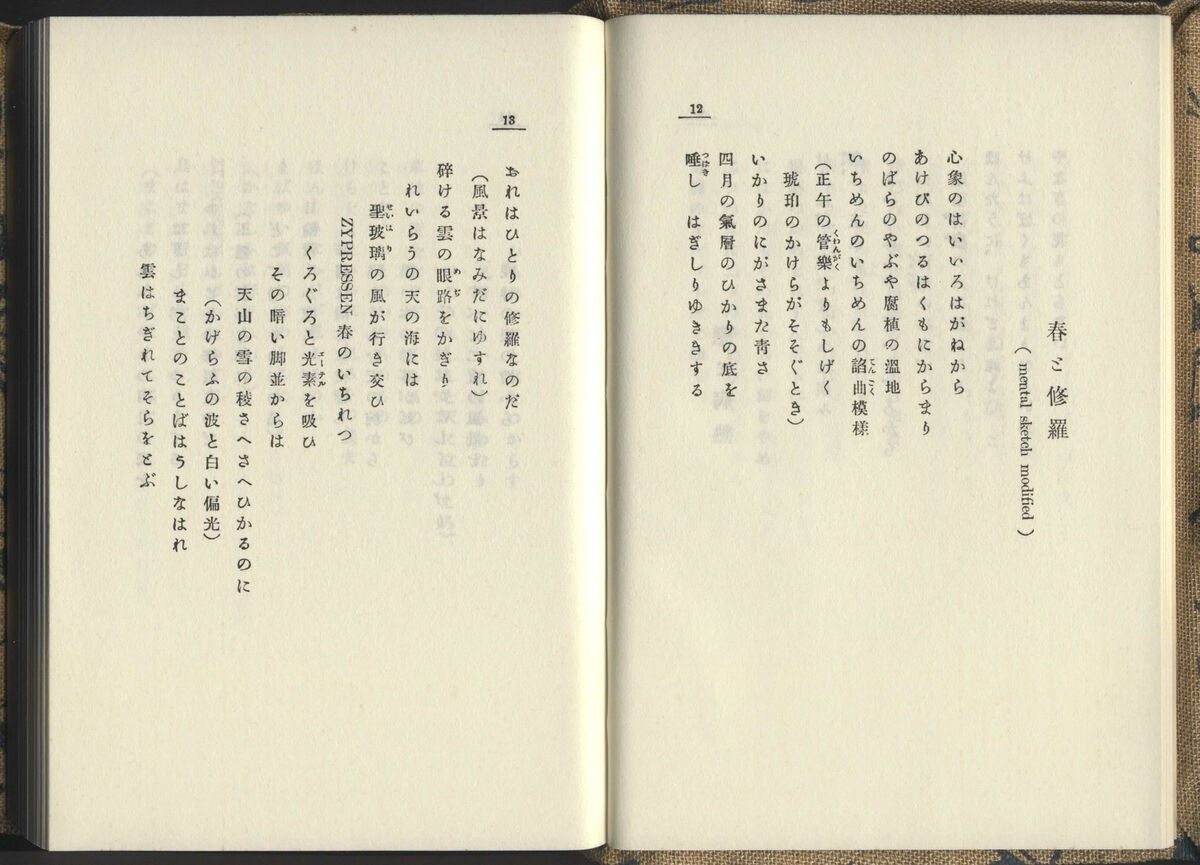 12
春と修羅
(mental sketch modified)
心象のはいいろはがねから
あけびのつるはくもにからまり
のばらのやぶや腐植の濕地
いちめんのいちめんの諂曲模様
(正午の管樂よりもしげく
琥珀のかけらがそそぐとき)
いかりのにがさまた靑さ
四月の氣層のひかりの底を
唾し はぎしりゆききする
13
おれはひとりの修羅なのだ
(風景はなみだにゆすれ)
碎ける雲の眼路をかぎり
れいらうの天の海には
聖玻璃の風が行き交ひ
ZYPRESSEN 春のいちれつ
くろぐろと光素を吸ひ
その暗い脚並からは
天山の雪の稜さへひかるのに
(かげらふの波と白い偏光)
まことのことばはうしなはれ
雲はちぎれてそらをとぶ